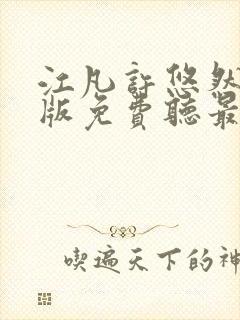 江凡許悠然
版免費聽最
喫遍天下的神